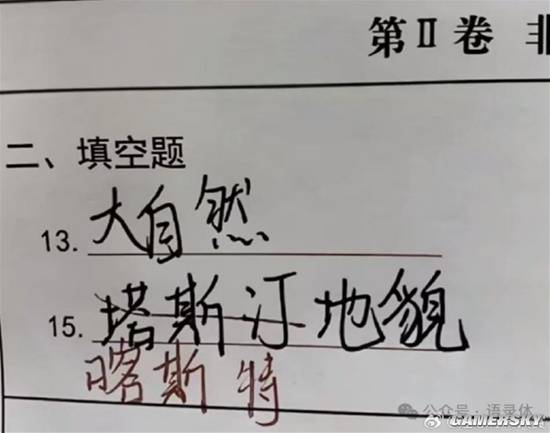 第Ⅱ卷 非
二、填空题
13. 大自然
15. 塔斯汀地貌
喀斯特
公众号·语录体
GAMERSKY